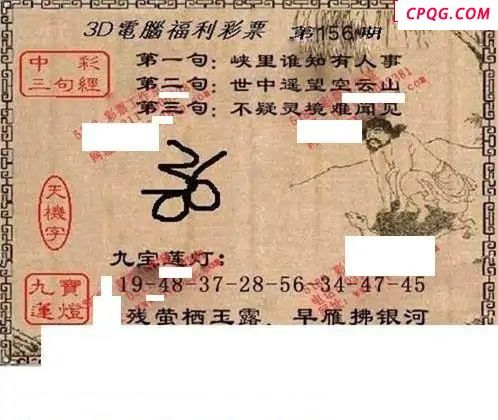 CPQG.COM
3D電腦福利彩票 第156期
中彩三句經
第一句：峡里谁知有人事
第二句：世中遥望空云山
第三句：不疑灵境难闻见
天機字
九宝莲灯：
九寶蓮燈
19-48-37-28-56-34-47-45
残萤栖玉露，早雁拂银河